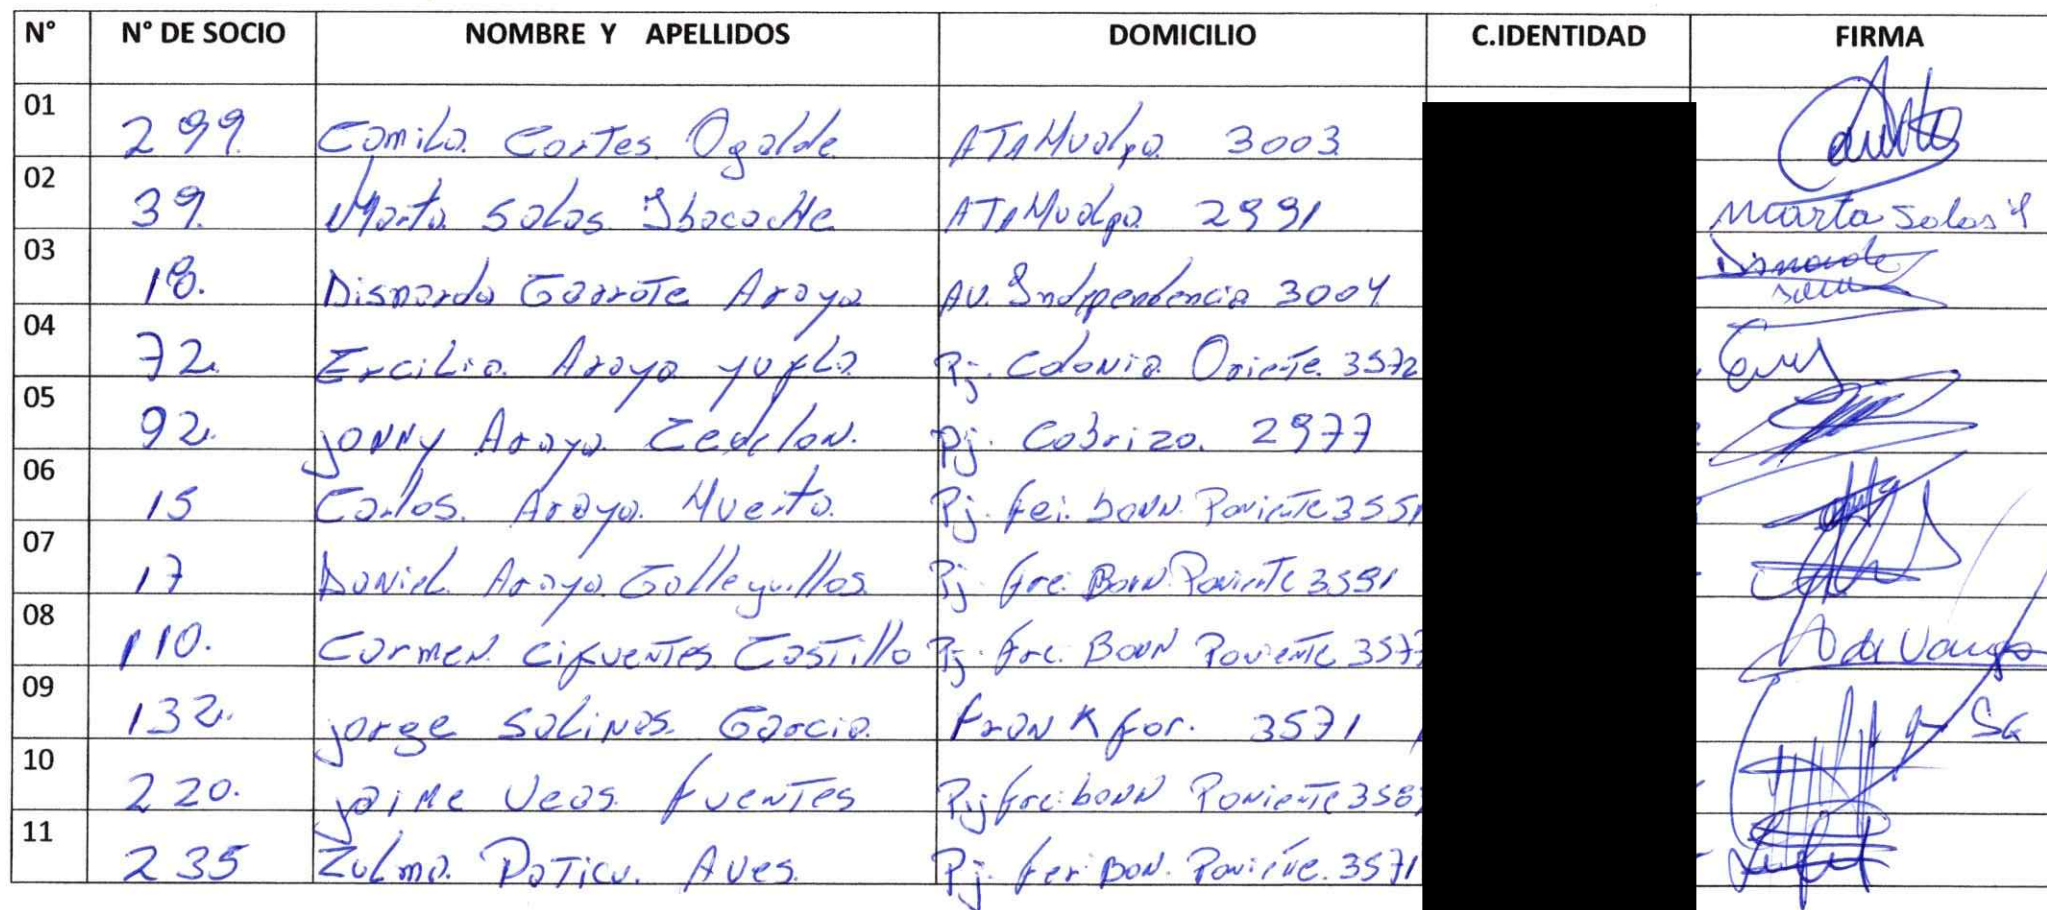 N° N° DE SOCIO NOMBRE Y APELLIDOS DOMICILIO C.IDENTIDAD FIRMA
01 299. Camila. Cortes. Ogalde ATAHualpa 3003
02 39. Marta. Salas. Ibacache ATAHualpa 2991 Marta Salas
03 18. Dismarda Garrote Araya AV. Independencia 3004
04 72. Ercilia. Araya Pj. Colonia Oriente. 3572
05 92. jonny Araya. Pj. Cobrizo. 2977
06 15 Carlos. Araya. Huerta. Pj. fei. bonn. Poniente 3551
07 17 Daniel. Araya. Galleguillos Pj. fre. Bonn. Poniente 3591
08 110. Carmen. Cifuentes Castillo Pj. fre. Bonn Poniente
09 132. jorge Salinas. Garcia. Frank for. 3571
10 220. jaime Veas. fuentes Pj fre. bonn Poniente
11 235 Zulma. Aves. Pj. fer. Bon. 3571